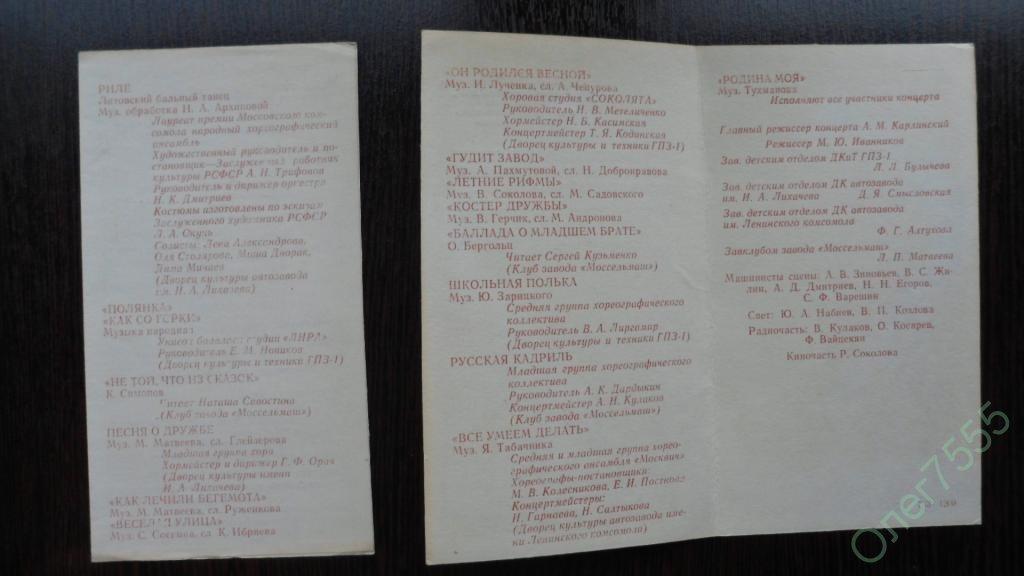 РИЛЕ
Литовский бальный танец
Муз. обработка Н. А. Архиповой
Лауреат премии Московского ком-
сомола народный хореографический
ансамбль
Художественный руководитель и по-
становщик—Заслуженный работник
культуры РСФСР А. Н. Трифонов
Руководитель и дирижер оркестра
Н. К. Дмитриев
Костюмы изготовлены по эскизам
Заслуженного художника РСФСР
Л. А. Окунь
Солисты: Лена Александрова,
Оля Столярова, Миша Дворак,
Дима Мичаев
(Дворец культуры автозавода
им. И. А. Лихачева)
«ПОЛЯНКА»
«КАК СО ГОРКИ»
Музыка народная
Унисон балалаек студии «ЛИРА»
Руководитель Е. М. Новиков
(Дворец культуры и техники ГПЗ-1)
«НЕ ТОЙ, ЧТО ИЗ СКАЗОК»
К. Симонов
Читает Наташа Севостина
(Клуб завода «Моссельмаш»)
ПЕСНЯ О ДРУЖБЕ
Муз. М. Матвеева, сл. Глейзерова
Младшая группа хора
Хормейстер и дирижер Г. Ф.
(Дворец культуры имени
И. А. Лихачева)
«КАК ЛЕЧИЛИ БЕГЕМОТА»
Муз. М. Матвеева, сл. Руженкова
«ВЕСЕЛАЯ УЛИЦА»
Муз. С. Соснина, сл. К. Ибряева
«ОН РОДИЛСЯ ВЕСНОЙ»
Муз. И. Лученка, сл. А. Чепурова
Хоровая студия «СОКОЛЯТА»
Руководитель Н. В. Метеличенко
Хормейстер Н. Б. Касинская
Концертмейстер Т. Я. Кодинская
(Дворец культуры и техники ГПЗ-1)
«ГУДИТ ЗАВОД»
Муз. А. Пахмутовой, сл. Н. Добронравова
«ЛЕТНИЕ РИФМЫ»
Муз. В. Соколова, сл. М. Садовского
«КОСТЕР ДРУЖБЫ»
Муз. В. Герчик, сл. М. Андронова
«БАЛЛАДА О МЛАДШЕМ БРАТЕ»
О. Бергольц
Читает Сергей Кузьменко
(Клуб завода «Моссельмаш»)
ШКОЛЬНАЯ ПОЛЬКА
Муз. Ю. Зарицкого
Средняя группа хореографического
коллектива
Руководитель В. А. Лиргамир
(Дворец культуры и техники ГПЗ-1)
РУССКАЯ КАДРИЛЬ
Младшая группа хореографического
коллектива
Руководитель А. К. Дардыкин
Концертмейстер А. Н. Кулаков
(Клуб завода «Моссельмаш»)
«ВСЕ УМЕЕМ ДЕЛАТЬ»
Муз. Я. Табачника
Средняя и младшая группа хорео-
графического ансамбля «Москвич»
Хореографы-постановщики:
М. В. Колесникова, Е. И. Постнова
Концертмейстеры:
И. Гарнаева, Н. Салтыкова
(Дворец культуры автозавода име-
ни Ленинского комсомола)
«РОДИНА МОЯ»
Муз. Тухманова
Исполняют все участники концерта
Главный режиссер концерта А. М. Карлинский
Режиссер М. Ю. Иванников
Зав. детским отделом ДКиТ ГПЗ-1
Л. Л. Булычева
Зав. детским отделом ДК автозавода
им. И. А. Лихачева Д. Я. Смысловская
Зав. детским отделом ДК автозавода
им. Ленинского комсомола
Ф. Г. Алтухова
Завклубом завода «Моссельмаш»
Л. П. Матвеева
Машинисты сцены: А. В. Зиновьев, В. С. Жи-
лин, А. Д. Дмитриев, Н. Н. Егоров,
С. Ф. Варешин
Свет: Ю. А. Набиев, В. П. Козлова
Радиочасть: В. Кулаков, О. Косярев,
Ф. Вайцехян
Киночасть Р. Соколова
Олег7555